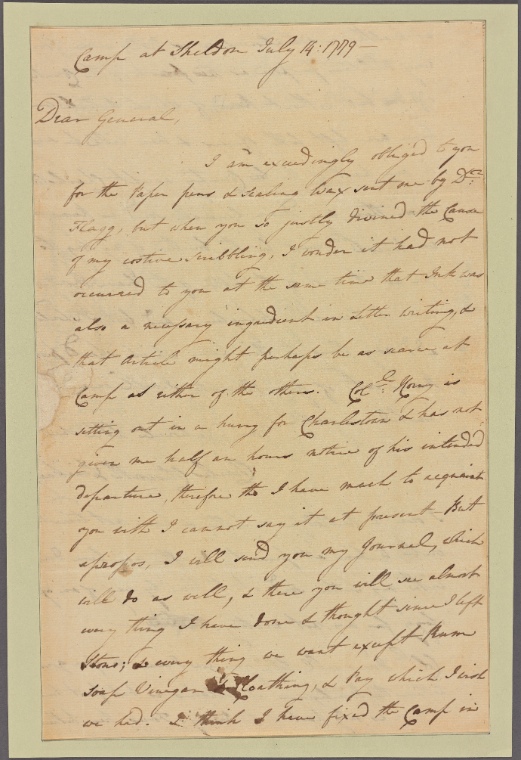 Camp at Sheldon July 14: 1779 –
Dear General,
I am exceedingly obliged to you
for the Paper pens & Sealing Wax sent me by Docr.
Flagg, but when you so justly divined the Cause
of my costive Scribbling, I wonder it had not
occurred to you at the same time that Ink was
also a necessary ingredient in Letter writing, &
that article might perhaps be as scarce at
Camp as either of the others. Col. Horry is
setting out in a hurry for Charlestown & has not
given me half an hours notice of his intended
departure, therefore tho' I have much to acquaint
you with I cannot say it at present. But
apropos, I will send you my Journal, which
will do as well, & there you will see almost
every thing I have done & thought since I left
Stono; & every thing we want except Rum
Soap Vinegar & Cloathing, & Pay which I wish
we had. I think I have fixed the Camp in